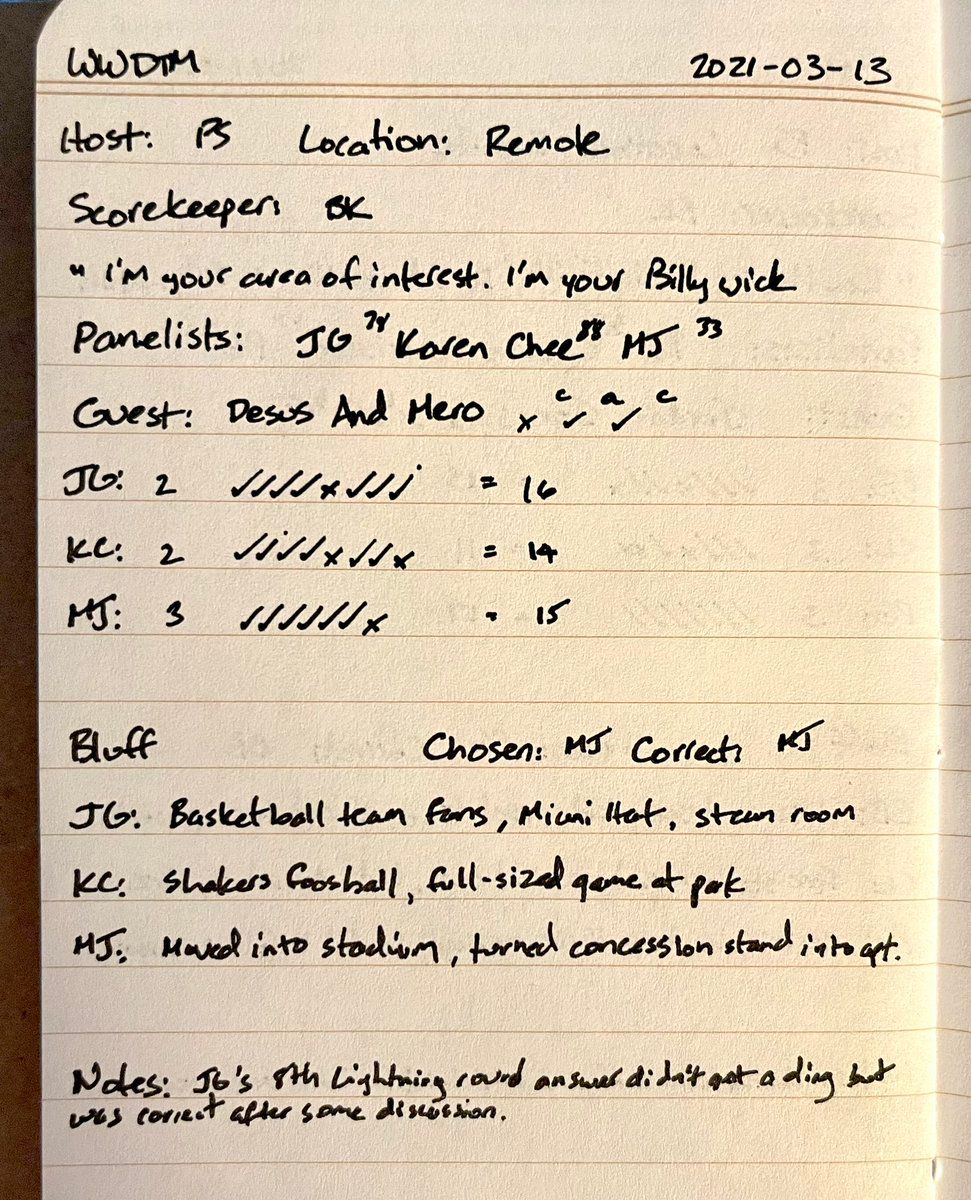 WWDTM 2021-03-13
Host: PS Location: Remote
Scorekeeper: BK
" I'm your area of interest. I'm your Billy wick
Panelists: JG 78 Karen Chee 88 MJ 33
Guest: Desus And Mero x ✓ c ✓ a c
JG: 2 ✓✓✓✓x✓✓✓ = 16
KC: 2 ✓✓✓✓x✓✓x = 14
MJ: 3 ✓✓✓✓✓✓x = 15
Bluff Chosen: MJ Correct: MJ
JG: Basketball team fans, Miami Heat, steam room
KC: Shakers foosball, full-sized game at park
MJ: Moved into stadium, turned concession stand into apt.
Notes: JG's 8th Lightning round answer didn't get a ding but
was correct after some discussion.